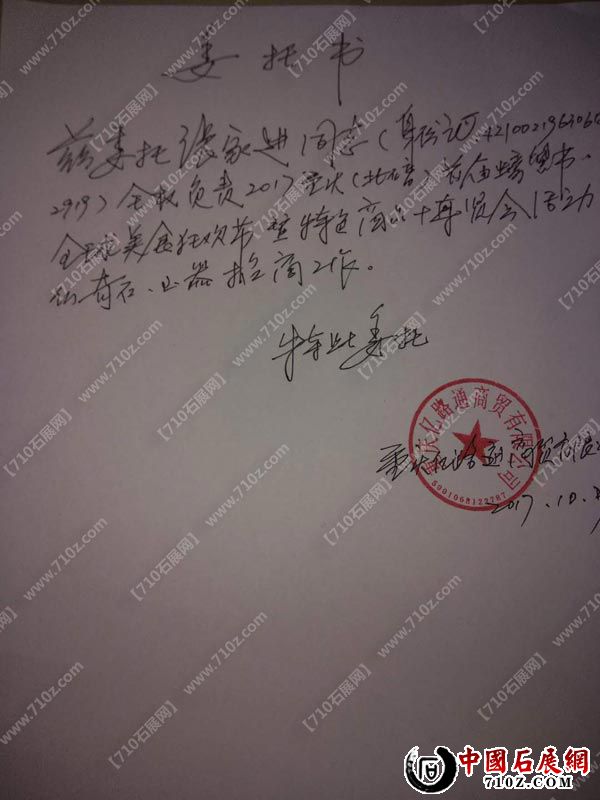 委托书
兹委托 家进同志（身份证
2919）全权负责2017重庆（北碚）首届 节.
全球美食狂欢节暨特色商品 会活动
的奇石、玉器招商工作。
特此委托
重庆亿路通商贸有限公司
5001068122787
重庆亿路通商贸有限
2017.10.
【710石展网】
www.710z.com
中國石展網
710Z.COM